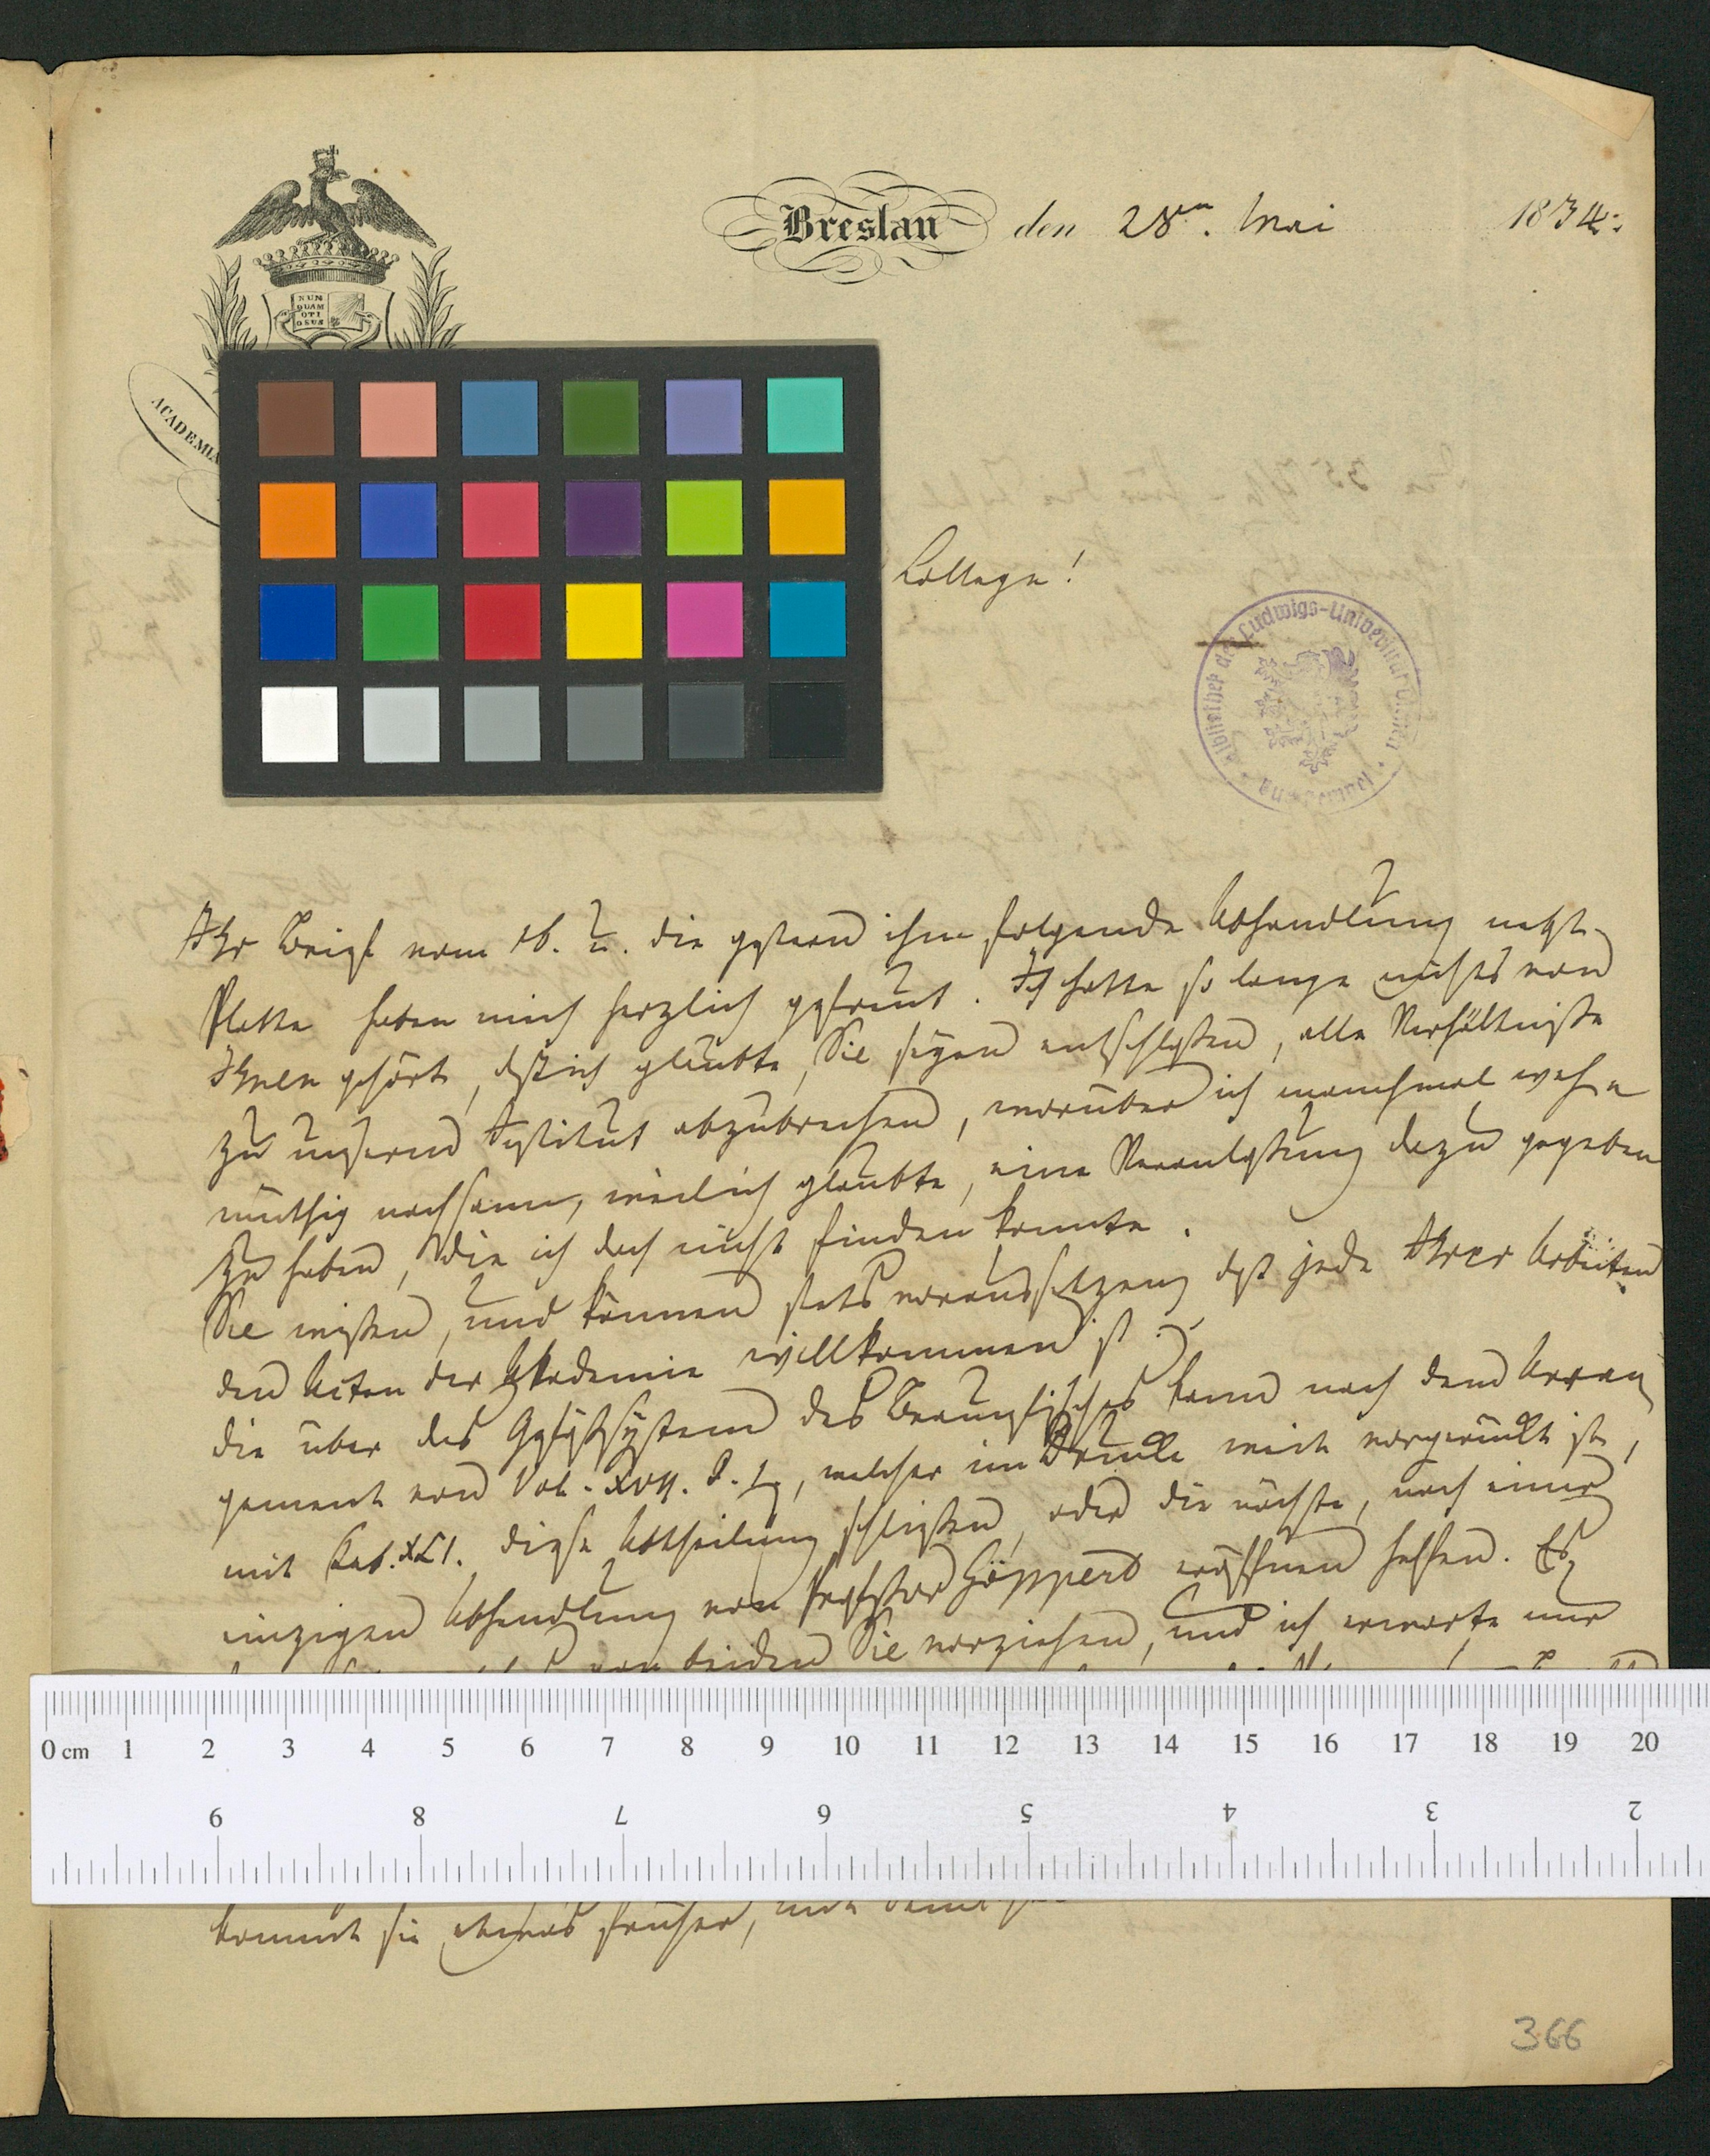 NUN
QUAM
OTI
OSUS
ACADEMIA
Breslau den 28n. Mai 1834.
College!
Bibliothek der Ludwigs-Universität Giessen
Ihr Brief vom 16. u. die gestern ihm folgende Abhandlung nebst
Platte haben mich herzlich gefreut. Ich hatte so lange nichts von
Ihnen gehört, daß ich glaubte, Sie seyen entschlossen, alle Verhältnisse
zu unserm Institut abzubrechen, worüber ich manchmal weh
müthig nachsann, weil ich glaubte, eine Veranlassung dazu gegeben
zu haben, die ich doch nicht finden konnte.
Sie wissen, und können stets voraussetzen, daß jede Ihrer Arbeiten
den Acten der Akademie willkommen ist.
die über das Gefäßsystem des kann nach dem Arran
gement von Vol. XVII. P. I, welcher im Drucke weit vorgerückt ist,
mit Tab. XLI. diese Abtheilung schließen, oder die nächste, nach einer
einzigen Abhandlung von Professor Göppert eröffnen helfen. Es
von beiden Sie vorziehen, und ich erwarte nur
0 cm 1 2 3 4 5 6 7 8 9 10 11 12 13 14 15 16 17 18 19 20
9 8 7 6 5 4 3 2
kommt sie etwas früher,
366